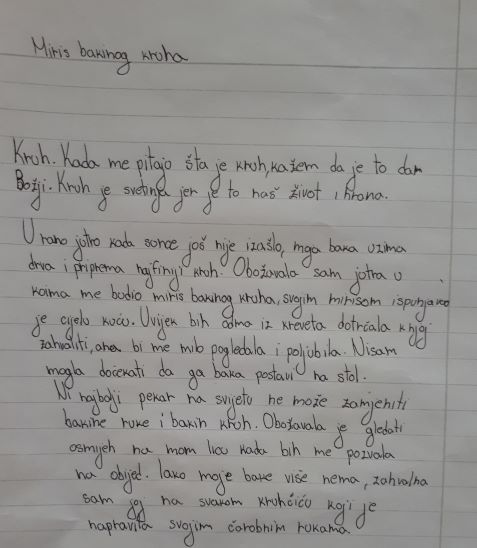 Miris bakinog kruha
Kruh. Kada me pitajo šta je kruh, kažem da je to dar
Božji. Kruh je svetinja jer je to naš život i hrana.
U rano jutro kada sunce još nije izašlo, moja baka uzima
drva i priprema najfiniji kruh. Obožavala sam jutra u
kojima me budio miris bakinog kruha, svojim mirisom ispunjavao
je cijelu kuću. Uvijek bih odma iz kreveta dotrčala k njoj
zahvaliti, ona bi me milo pogledala i poljubila. Nisam
mogla dočekati da ga baka postavi na stol.
Ni najbolji pekar na svijetu ne može zamjeniti
bakine ruke i bakin kruh. Obožavala je gledati
osmijeh na mom licu kada bih me pozvala
na obijed. Iako moje bake više nema, zahvalna
sam joj na svakom kruhčiću koji je
napravila svojim čarobnim rukama.